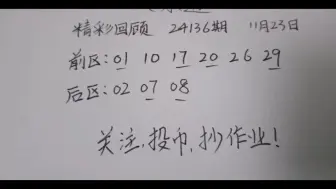 精彩回顾 24136期 11月23日
前区：01 10 17 20 26 29
后区：02 07 08
关注，投币，抄作业！